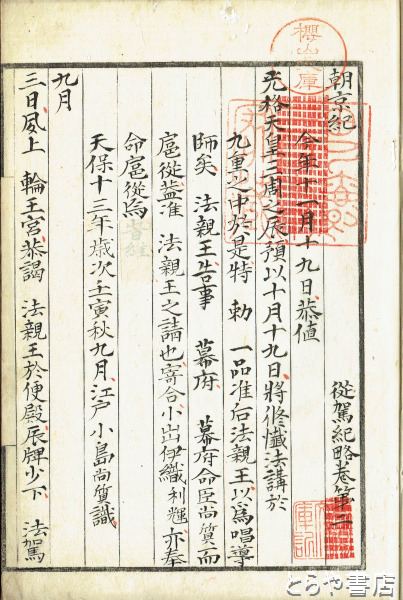 朝京紀　從駕紀略卷第二
今年十一月十九日恭値
光格天皇三周之辰預以十月十九日將修懺法講於
九重之中於是特　勅　一品准后法親王以爲唱導
師矣　法親王告事　幕府　幕府命臣尚質而
扈從蓋准　法親王之請也寄合小出伊織利輝亦奉
命扈從焉
天保十三年歳次壬寅秋九月江戸小島尚質識
九月
三日夙上　輪王宮恭謁　法親王於便殿辰牌少下　法駕
櫻山文庫
とらや書店